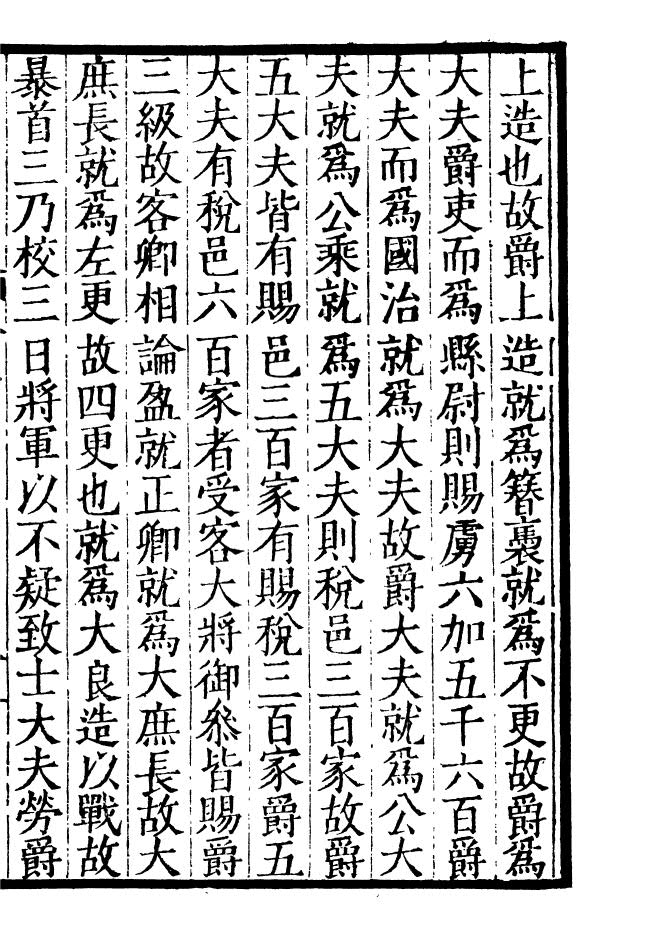 上造也故爵上造就爲簪褭就爲不更故爵爲
大夫爵吏而爲縣尉則賜虜六加五千六百爵
大夫而爲國治就爲大夫故爵大夫就爲公大
夫就爲公乘就爲五大夫則稅邑三百家故爵
五大夫皆有賜邑三百家有賜稅三百家爵五
大夫有稅邑六百家者受客大將御叅皆賜爵
三級故客卿相論盈就正卿就爲大庶長故大
庶長就爲左更故四更也就爲大良造以戰故
暴首三乃校三日將軍以不疑致士大夫勞爵